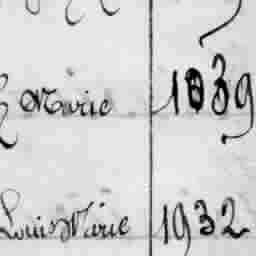 Marie 1939
Louis Marie 1932